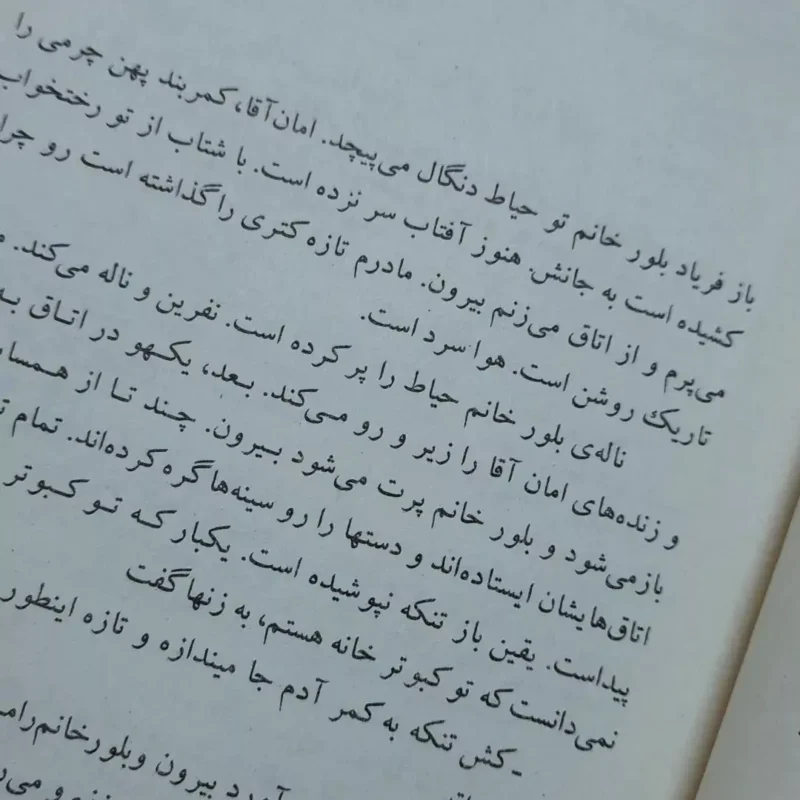 باز فریاد بلور خانم تو حیاط دنگال می‌پیچد. امان‌آقا، کمربند پهن چرمی را
کشیده است به جانش. هنوز آفتاب سر نزده است. با شتاب از تو رختخواب
می‌پرم و از اتاق می‌زنم بیرون. مادرم تازه کتری را گذاشته است رو چرا
تاریك روشن است. هوا سرد است.
ناله‌ی بلور خانم حیاط را پر کرده است. نفرین و ناله می‌کند.
و زنده‌های امان آقا را زیر و رو می‌کند. بعد، یکهو در اتاق به
بازمی‌شود و بلور خانم پرت می‌شود بیرون. چند تا از همسا
اتاق‌هایشان ایستاده‌اند و دستها را رو سینه‌ها گره کرده‌اند. تمام
پیداست. یقین باز تنکه نپوشیده است. یکبار که تو کبوتر
نمی‌دانست که تو کبوتر خانه هستم، به زنها گفت
- کش تنکه به کمر آدم جا میندازه و تازه اینطور
آورد بیرون و بلور خانم را